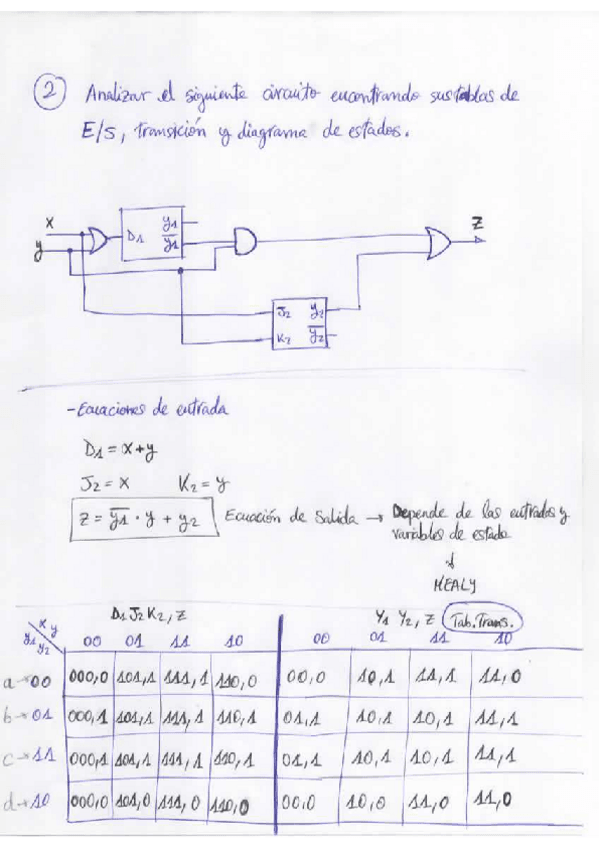 2 Analizar el siguiente circuito encontrando sus tablas de
E/S, transición y diagrama de estados.
x
y
D1 y1
y1
z
J2 y2
K2 y2
-Ecuaciones de entrada
D1 = x+y
J2 = x K2 = y
z = y1 · y + y2 Ecuación de Salida → Depende de las entradas y
variables de estado
↓
MEALY
D1 J2 K2, Z Y1 Y2, Z Tab.Trans.
xy
y1 y2 00 01 11 10 00 01 11 10
a→00 000,0 101,1 111,1 110,0 00,0 10,1 11,1 11,0
b→01 000,1 101,1 111,1 110,1 01,1 10,1 10,1 11,1
c→11 000,1 101,1 111,1 110,1 01,1 10,1 10,1 11,1
d→10 000,0 101,0 111,0 110,0 00,0 10,0 11,0 11,0